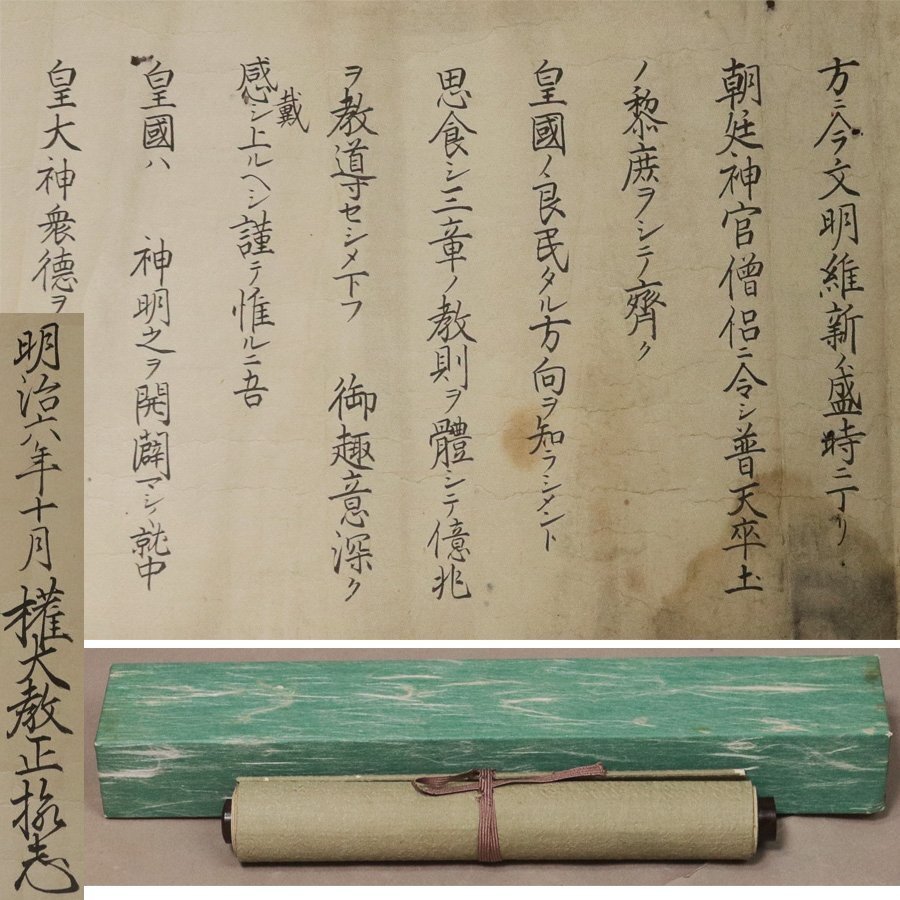 方ニ今ヲ文明維新ノ盛時ニ丁リ
朝廷神官僧侶ニ令シ普天卒土
ノ黎庶ヲシテ齊ク
皇國ノ良民タル方向ヲ知ラシメント
思食シ三章ノ教則ヲ體シテ億兆
ヲ教導セシメ下フ 御趣意深ク
感戴シ上ルヘシ謹テ惟ルニ吾
皇國ハ 神明之ヲ開闢マシ〱就中
皇大神衆德ヲ
明治六年十月 權大教正